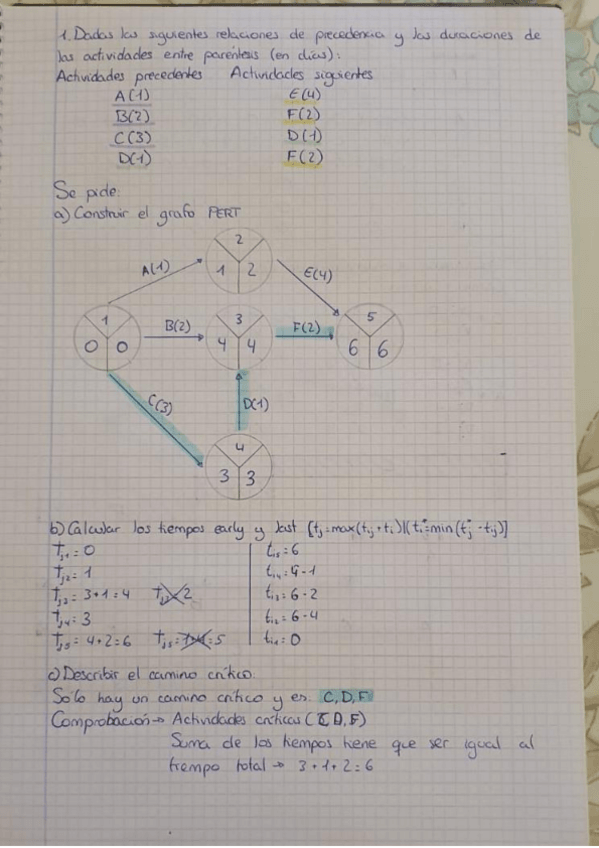 1. Dadas las siguientes relaciones de precedencia y las duraciones de
las actividades entre paréntesis (en días):
Actividades precedentes Actividades siguientes
A(1) E(4)
B(2) F(2)
C(3) D(1)
D(1) F(2)
Se pide:
a) Construir el grafo PERT
2
A(1) 1 2 E(4)
1 3 5
0 0 B(2) 4 4 F(2) 6 6
C(3) D(1)
4
3 3
b) Calcular los tiempos early y last [tj=max(tij+ti)] (ti*=min(tj*-tij)]
tj1=0 ti5=6
tj2=1 ti4=4-1
tj3=3+1=4 2 ti3=6-2
tj4=3 ti2=6-4
tj5=4+2=6 tj5= =5 ti1=0
c) Describir el camino crítico.
Solo hay un camino crítico y es: C,D,F
Comprobación→ Actividades críticas (C,D,F)
Suma de los tiempos tiene que ser igual al
tiempo total → 3+1+2=6